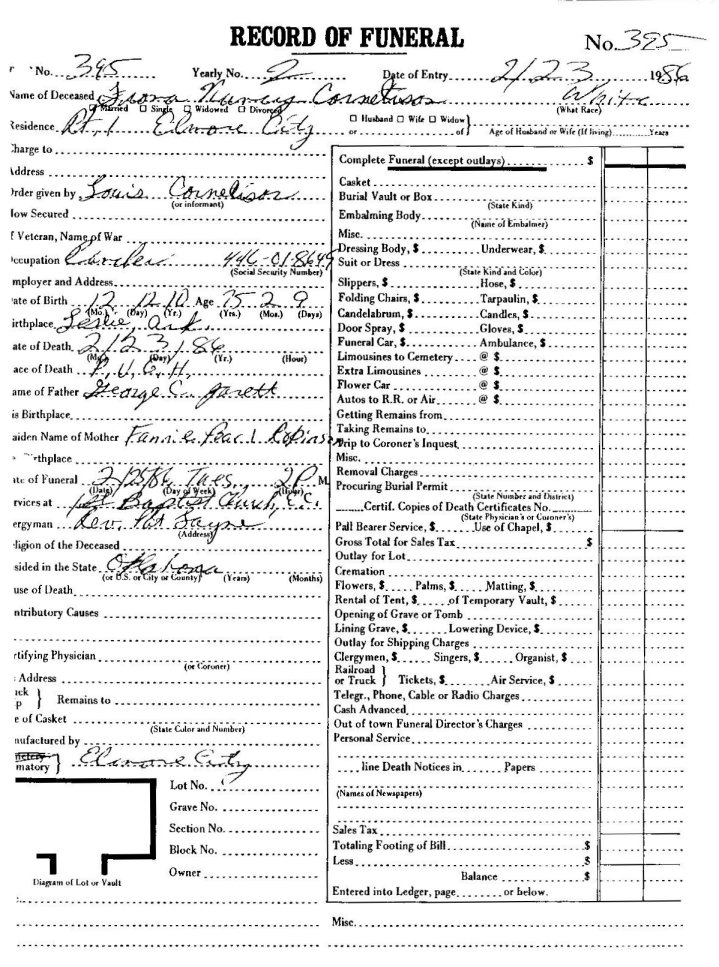 RECORD OF FUNERAL
No. 395
No. 395 Yearly No. 2 Date of Entry 2/23 1986
Name of Deceased Nancy Cornelison White
Married □ Single □ Widowed □ Divorced (What Race)
Residence Rt. 1 Elmore City
□ Husband □ Wife □ Widow
or of Age of Husband or Wife (If living) Years
Charge to
Address
Order given by Louis Cornelison
(or informant)
How Secured
If Veteran, Name of War
Occupation 446-01-8649
(Social Security Number)
Employer and Address
Date of Birth 12 12 10 Age 75 2 9
(Mo.) (Day) (Yr.) (Yrs.) (Mos.) (Days)
Birthplace Leslie, Ark.
Date of Death 2/23/86
(Mo.) (Day) (Yr.) (Hour)
Place of Death P. V. G. H.
Name of Father George C. Jarett
His Birthplace
Maiden Name of Mother Fannie Pearl
Birthplace
Date of Funeral 2/25/86 Tues, 2 P. M.
(Date) (Day of Week) (Hour)
Services at 1st Baptist Church, E.C.
Clergyman Rev. Pat
(Address)
Religion of the Deceased
Resided in the State Oklahoma
(or U.S. or City or County) (Years) (Months)
Cause of Death
Contributory Causes
Certifying Physician
(or Coroner)
Address
Remains to
of Casket
(State Color and Number)
Manufactured by
Elmore City
Lot No.
Grave No.
Section No.
Block No.
Owner
Diagram of Lot or Vault
Complete Funeral (except outlays) $
Casket
Burial Vault or Box
(State Kind)
Embalming Body
(Name of Embalmer)
Misc.
Dressing Body, $ Underwear, $
Suit or Dress
(State Kind and Color)
Slippers, $ Hose, $
Folding Chairs, $ Tarpaulin, $
Candelabrum, $ Candles, $
Door Spray, $ Gloves, $
Funeral Car, $ Ambulance, $
Limousines to Cemetery @ $
Extra Limousines @ $
Flower Car @ $
Autos to R.R. or Air @ $
Getting Remains from
Taking Remains to
Trip to Coroner's Inquest
Misc.
Removal Charges
Procuring Burial Permit
(State Number and District)
Certif. Copies of Death Certificates No.
(State Physician's or Coroner's)
Pall Bearer Service, $ Use of Chapel, $
Gross Total for Sales Tax $
Outlay for Lot
Cremation
Flowers, $ Palms, $ Matting, $
Rental of Tent, $ of Temporary Vault, $
Opening of Grave or Tomb
Lining Grave, $ Lowering Device, $
Outlay for Shipping Charges
Clergymen, $ Singers, $ Organist, $
Railroad
or Truck } Tickets, $ Air Service, $
Telegr., Phone, Cable or Radio Charges
Cash Advanced
Out of town Funeral Director's Charges
Personal Service
line Death Notices in Papers
(Names of Newspapers)
Sales Tax
Totaling Footing of Bill $
Less $
Balance $
Entered into Ledger, page or below.
Misc.